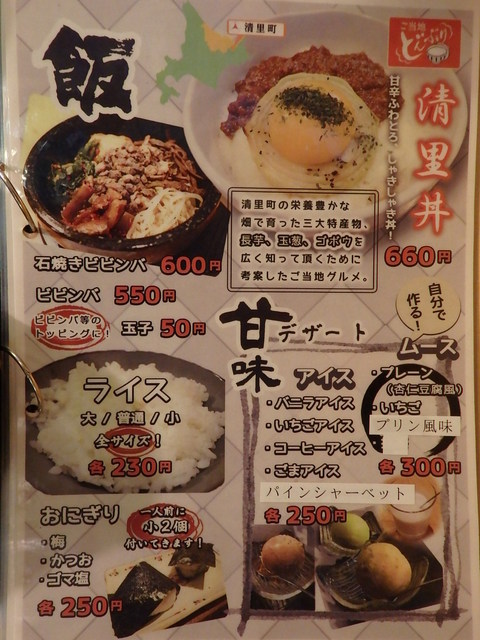 飯
清里町
ご当地
どんぶり
清里丼
甘辛ふわとろ、しゃきしゃき丼！
660円
清里町の栄養豊かな
畑で育った三大特産物、
長芋、玉葱、ゴボウを
広く知って頂くために
考案したご当地グルメ。
石焼きビビンバ 600円
ビビンバ 550円
ビビンバ等の
トッピングに！
玉子 50円
ライス
大／普通／小
全サイズ！
各230円
おにぎり
・梅
・かつお
・ゴマ塩
各250円
一人前に
小2個
付いてきます！
甘味
デザート
アイス
・バニラアイス
・いちごアイス
・コーヒーアイス
・ごまアイス
パインシャーベット
各250円
自分で
作る！
ムース
・プレーン
（杏仁豆腐風）
・いちご
プリン風味
各300円